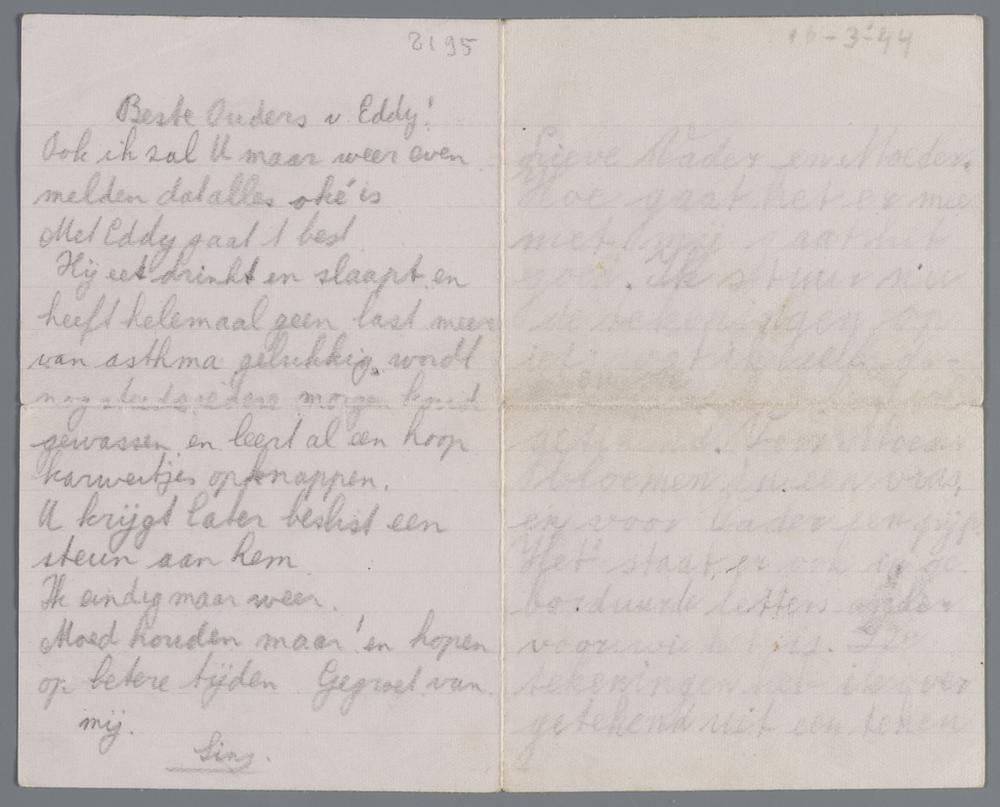 2195
Beste Ouders v Eddy!
Ook ik zal U maar weer even
melden dat alles oké is
Met Eddy gaat 't best
Hij eet drinkt en slaapt en
heeft helemaal geen last meer
van asthma gelukkig, wordt
nog iedere morgen koud
gewassen en leert al een hoop
karweitjes opknappen.
U krijgt later beslist een
steun aan hem
Ik eindig maar weer.
Moed houden maar! en hopen
op betere tijden Gegroet van
mij.
-3-'44
Lieve Vader en Moeder.
Hoe gaat het er mee
met mij gaat het
goed. Ik stuur nu
de tekeningen op
Voor Moeder
bloemen in een vaas,
en voor Vader een
Het staat er ook in ge
borduurde letters onder
voor wie het is. De
tekeningen heb ik over
getekend uit een teken